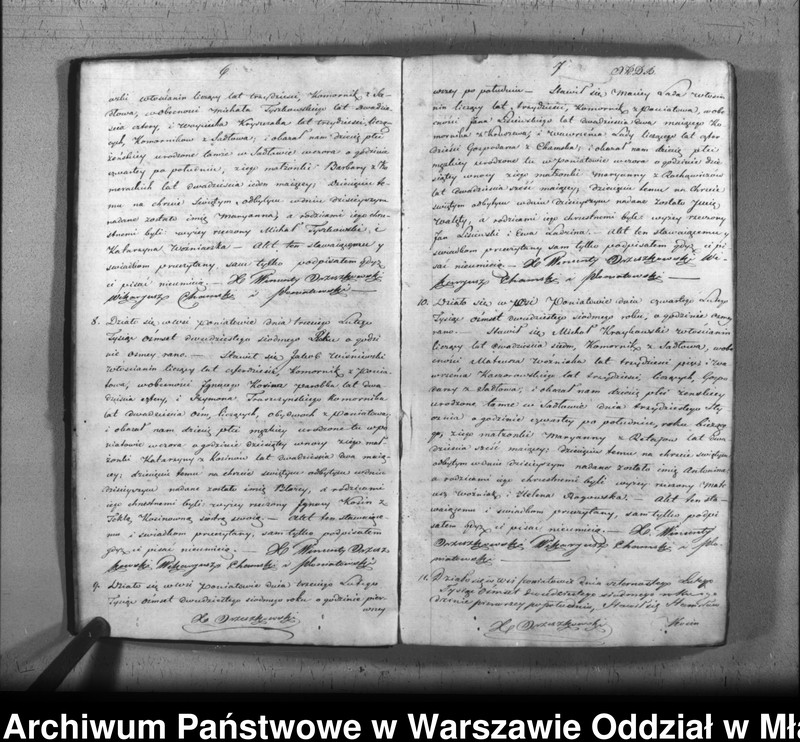 6
wski włościanin liczący lat trzydzieści, Komornik z Sa-
dłowa, w obecności Michała Tyszkowskiego lat dwadzie-
ścia cztery, i Woyciecha Krysztaka lat trzydzieści liczą-
cych, Komorników z Sadłowa; i okazał nam dziecię płci
żeńskiey urodzone tamże w Sadłowie wczora o godzinie
czwartey po południu, z iego małżonki Barbary z
lat dwadzieścia ieden maiącey; dziecięciu te-
mu na chrzcie świętym odbytym w dniu dzisieyszym
nadane zostało imię Maryanna, a rodzicami iego chrze-
stnemi byli wyżey rzeczony Michał Tyszkowski, i
Katarzyna Woźniacka — Akt ten stawaiącemu y
świadkom przeczytany sam tylko podpisałem gdyż
ci pisać nieumieią. — X. Wincenty Drzuszkowski
Wikaryusz Chamski i Poniatowski —
8. Działo się w wsi Poniatowie dnia trzeciego Lutego
Tysiąc ośmset dwudziestego siódmego Roku o godzi-
nie osmey rano. — Stawił się Jakob Wiśniewski
włościanin liczący lat czterdzieści, Komornik z Ponia-
towa, w obecności Jgnacego Kosina parobka lat dwa-
dzieścia cztery, i Szymona Komornika
lat dwadzieścia ośm, liczących, obydwóch z Poniatowa;
i okazał nam dziecię płci męzkiey urodzone tu w Po-
niatowie wczora o godzinie dziesiątey wnocy z iego mał-
żonki Katarzyny z Kosinów lat dwadzieścia dwa maią-
cey; dziecięciu temu na chrzcie świętym odbytym w dniu
dzisieyszym nadane zostało imię Błażey, a rodzicami
iego chrzestnemi byli wyżey rzeczony Jgnacy Kosin z
Teklą Kosinowną siostrą swoią — Akt ten stawaiące-
mu i świadkom przeczytany, sam tylko podpisałem
gdyż ci pisać nieumieią. — X. Wincenty Drzusz-
kowski Wikaryusz Chamski i Poniatowski
9. Działo się w wsi Poniatowie dnia trzeciego Lutego
Tysiąc ośmset dwudziestego siódmego roku o godzinie pier-
wszey
X. Drzuszkowski
7
wszey po południu — Stawił się Maciey Łada włościa-
nin liczący lat trzydzieści, Komornik z Poniatowa, w obe-
cności Jana Lisińskiego lat dwadzieścia dwa maiącego Ko-
mornika z, i Wawrzeńca Łady liczącego lat czter-
dzieści Gospodarza z Chamska; i okazał nam dziecię płci
męzkiey urodzone tu w Poniatowie wczora o godzinie dzie-
siątey wnocy z iego małżonki Maryanny z
lat dwadzieścia sześć maiącey; dziecięciu temu na chrzcie
świętym odbytym w dniu dzisieyszym nadane zostało imię
Walęty, a rodzicami iego chrzestnemi byli wyżey rzeczony
Jan Lisiński i Ewa Ładzina. — Akt ten stawaiącemu y
świadkom przeczytany sam tylko podpisałem gdyż ci pi-
sać nieumieią — X. Wincenty Drzuszkowski Wi-
karyusz Chamski i Poniatowski —
10. Działo się w wsi Poniatowie dnia czwartego Lutego
Tysiąc ośmset dwudziestego siódmego roku, o godzinie osmey
rano. — Stawił się Michał Krzyżanowski włościanin
liczący lat dwadzieścia siedm, Komornik z Sadłowa, w obe-
cności Mateusza Woźniaka lat trzydzieści pięć i Wa-
wrzeńca Karzonowskiego lat trzydzieści, liczących, Gospo-
darzy z Sadłowa; i okazał nam dziecię płci żenskiey
urodzone tamże w Sadłowie dnia trzydziestego Sty-
cznia o godzinie czwartey po południu, roku bieżące-
go, z iego małżonki Maryanny z lat dwa-
dzieścia sześć maiącey; dziecięciu temu na chrzcie świętym
odbytym w dniu dzisieyszym nadane zostało imię Antonina,
a rodzicami iego chrzestnemi byli wyżey rzeczony Mate-
usz Woźniak, i Helena Rogowska. — Akt ten sta-
waiącemu i świadkom przeczytany, sam tylko podpi-
sałem gdyż ci pisać nieumieią. — X. Wincenty
Drzuszkowski Wikaryusz Chamski i Po-
niatowski —
11. Działo się w wsi Poniatowie dnia Lutego
Tysiąc ośmset dwudziestego siódmego roku o go-
dzinie pierwszey po południu, Stawił się Stanisław
Kosin
X. Drzuszkowski
Archiwum Państwowe w Warszawie Oddział w Mła